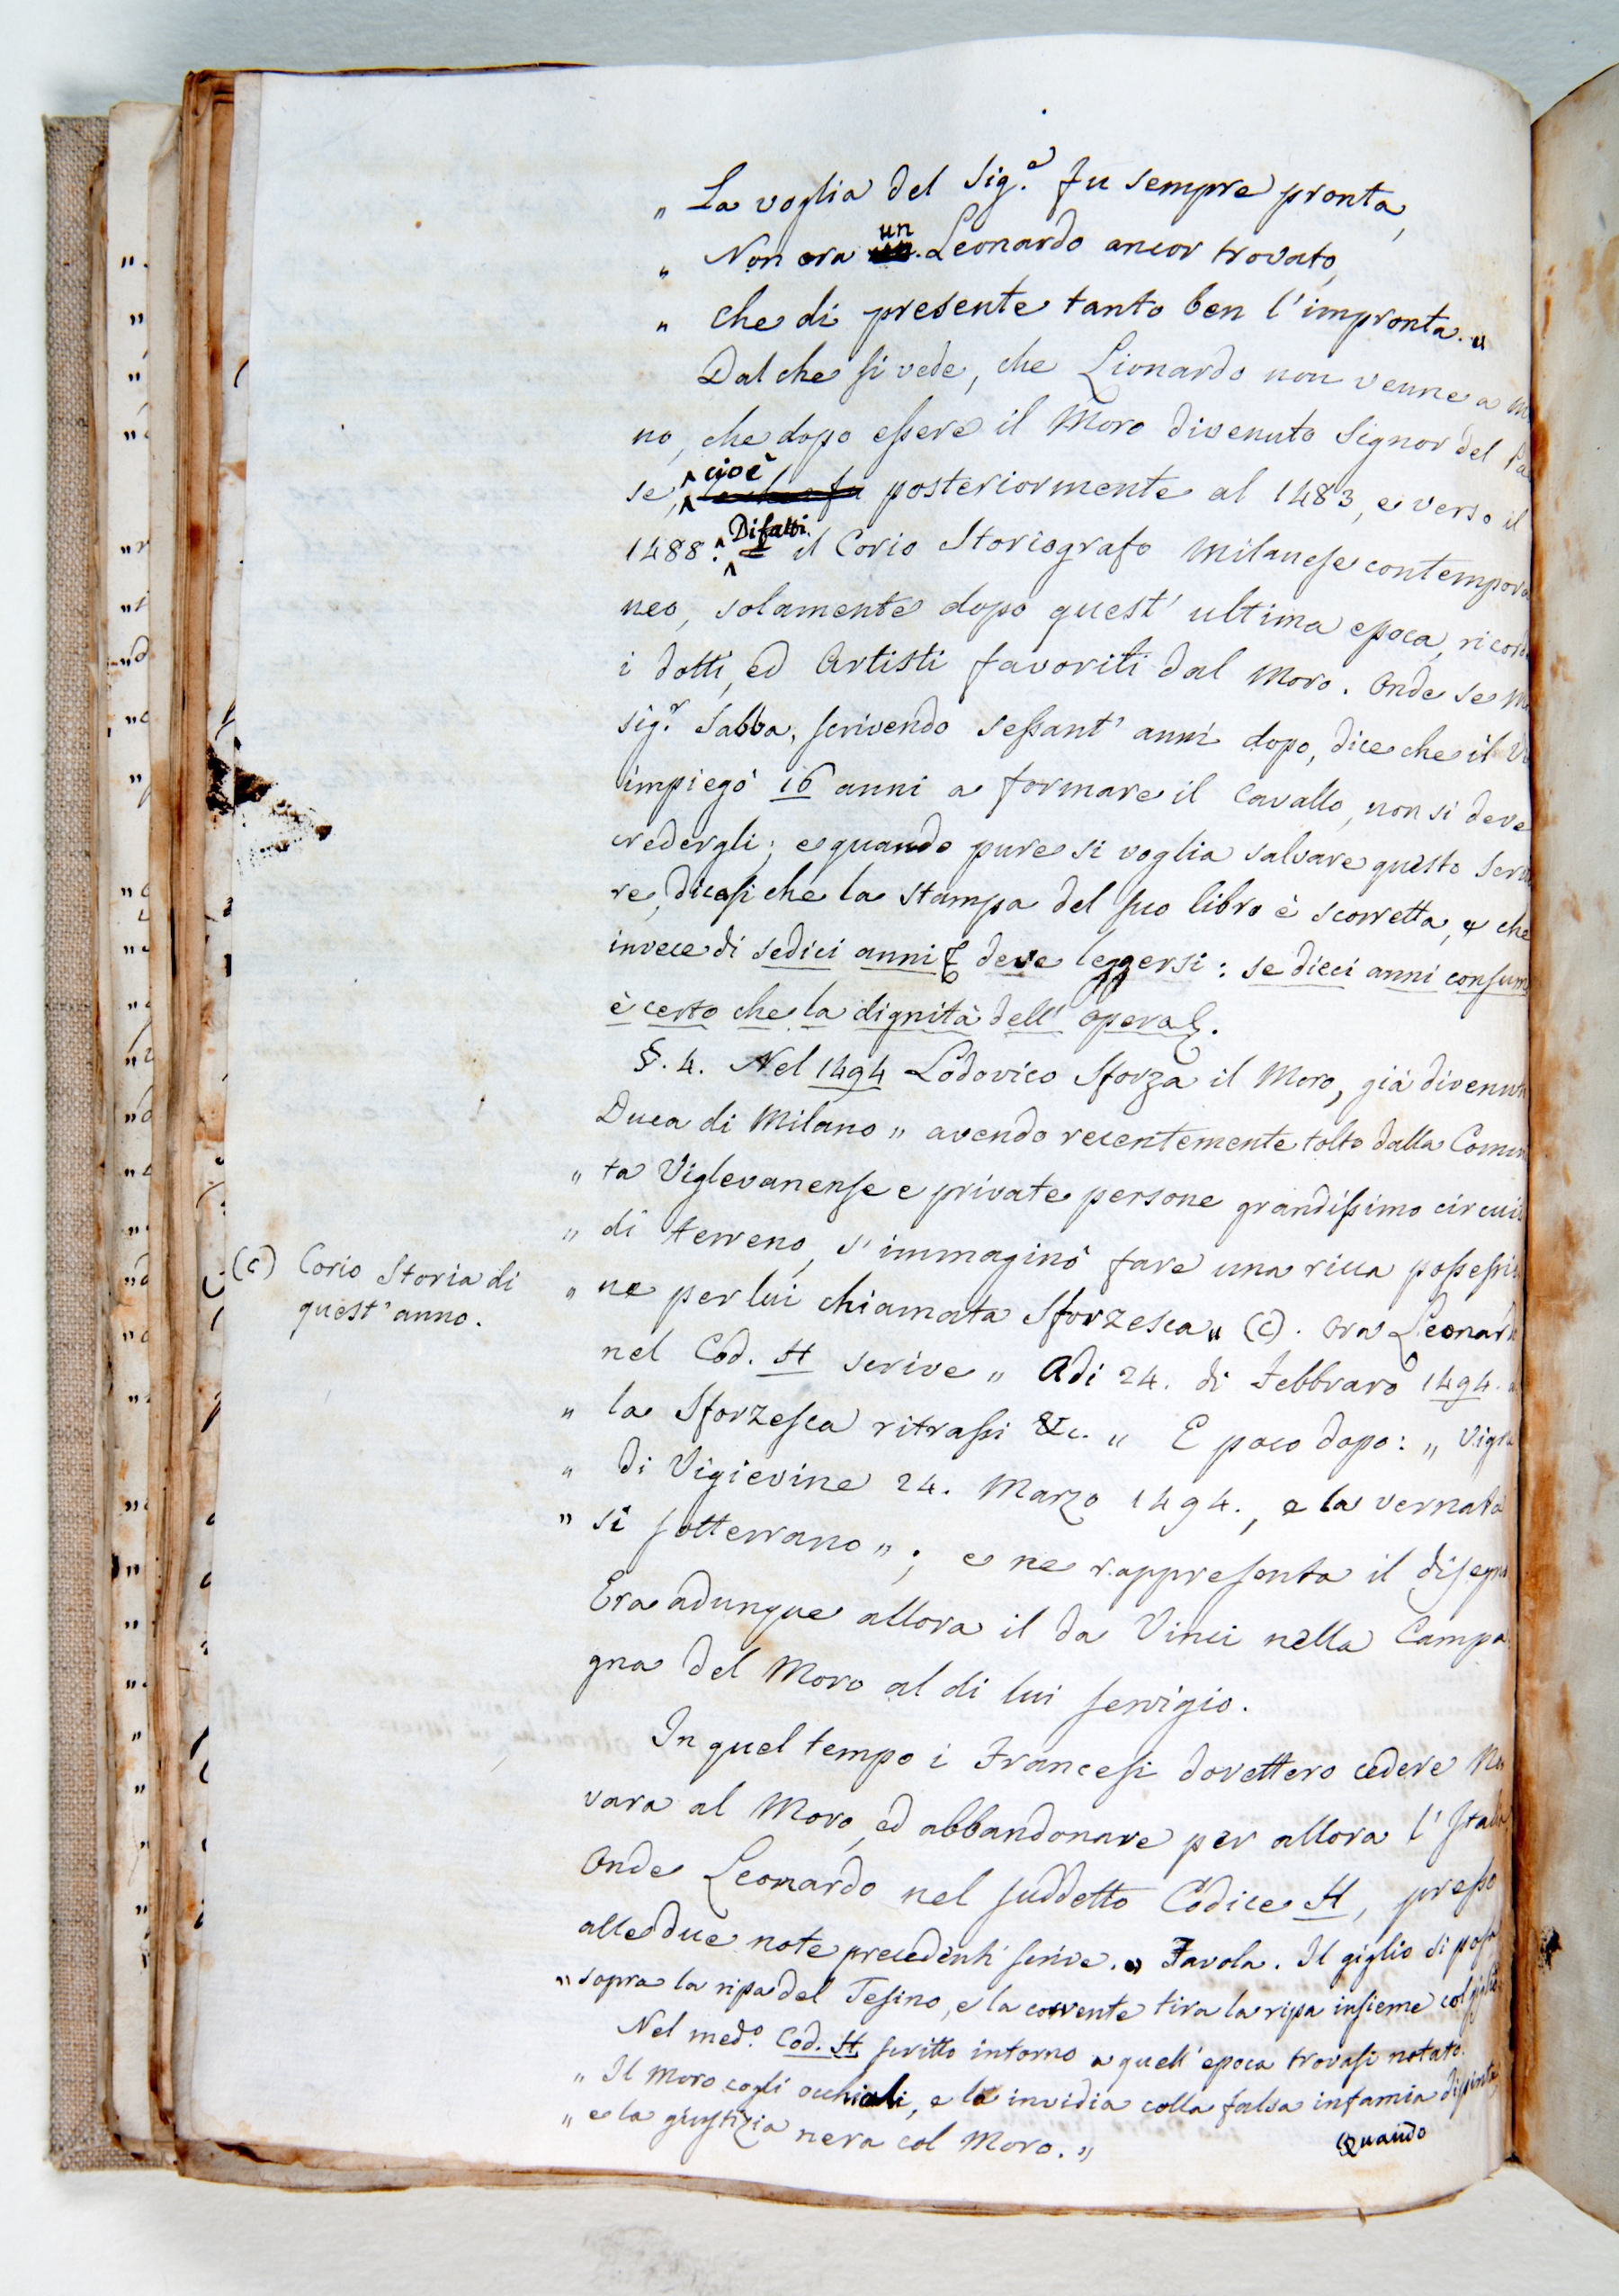 „ La voglia del Sig.e fu sempre pronta,
„ Non era un Leonardo ancor trovato,
„ che di presente tanto ben l'impronta. „
Dal che si vede, che Lionardo non venne a
no, che dopo essere il Moro divenuto Signor del
se, cioè posteriormente al 1483, e verso il
1488. Difatti il Corio Storiografo Milanese contempora
neo, solamente dopo quest' ultima epoca, ricorda
i dotti, ed Artisti favoriti dal Moro. Onde se M
sig.r Sabba, scrivendo sessant' anni dopo, dice che il Vi
impiegò 16 anni a formare il Cavallo, non si deve
credergli; e quando pure si voglia salvare questo Scritto
re, dicasi che la stampa del suo libro è scorretta, e che
invece di sedici anni & deve leggersi: se dieci anni consum
è certo che la dignità dell' opera &.
§. 4. Nel 1494 Lodovico Sforza il Moro, già divenuto
Duca di Milano „ avendo recentemente tolto dalla Comuni
„ ta Viglevanense e private persone grandissimo circuito
„ di terreno, s' immaginò fare una ricca possessio
„ ne per lui chiamata Sforzesca „ (c). Ora Leonardo
(c) Corio Storia di
quest' anno.
nel Cod. H scrive „ Adi 24. di Febbraro 1494. a
„ la Sforzesca ritrassi &c. „ E poco dopo: „ Vigna
„ di Vigievine 24. Marzo 1494., e la vernata
„ si sotterrano „; e ne rappresenta il disegno
Era adunque allora il da Vinci nella Campa
gna del Moro al di lui servigio.
In quel tempo i Francesi dovettero cedere No
vara al Moro, ed abbandonare per allora l' Italia
Onde Leonardo nel suddetto Codice H, presso
alle due note precedenti scrive. „ Favola. Il giglio si posa
„ sopra la ripa del Tesino, e la corrente tira la ripa insieme col giglio
Nel med.o Cod. H scritto intorno a quell' epoca trovasi notato.
„ Il Moro cogli occhiali, e la invidia colla falsa infamia dipinta,
„ e la giustizia nera col Moro. „
Quando